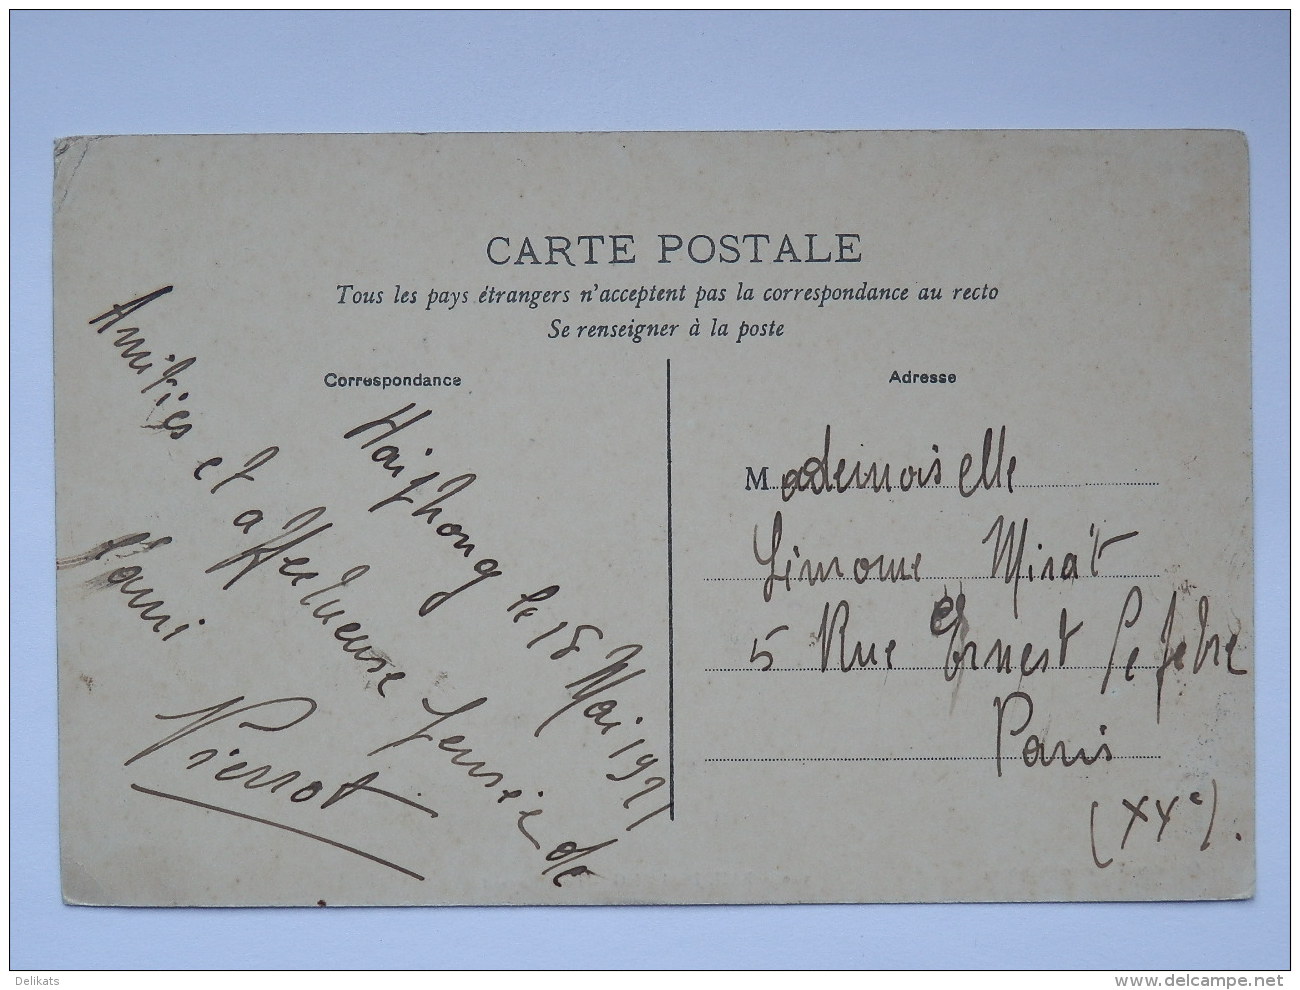 CARTE POSTALE
Tous les pays étrangers n'acceptent pas la correspondance au recto
Se renseigner à la poste
Correspondance
Haiphong le 15 Mai 1921
Amitiés et affectueuse pensée de
l'ami
Pierrot
Adresse
Mademoiselle
Simone Mirat
5 Rue Ernest Lefebre
Paris
(XXe).
Delikats
delcampe.net